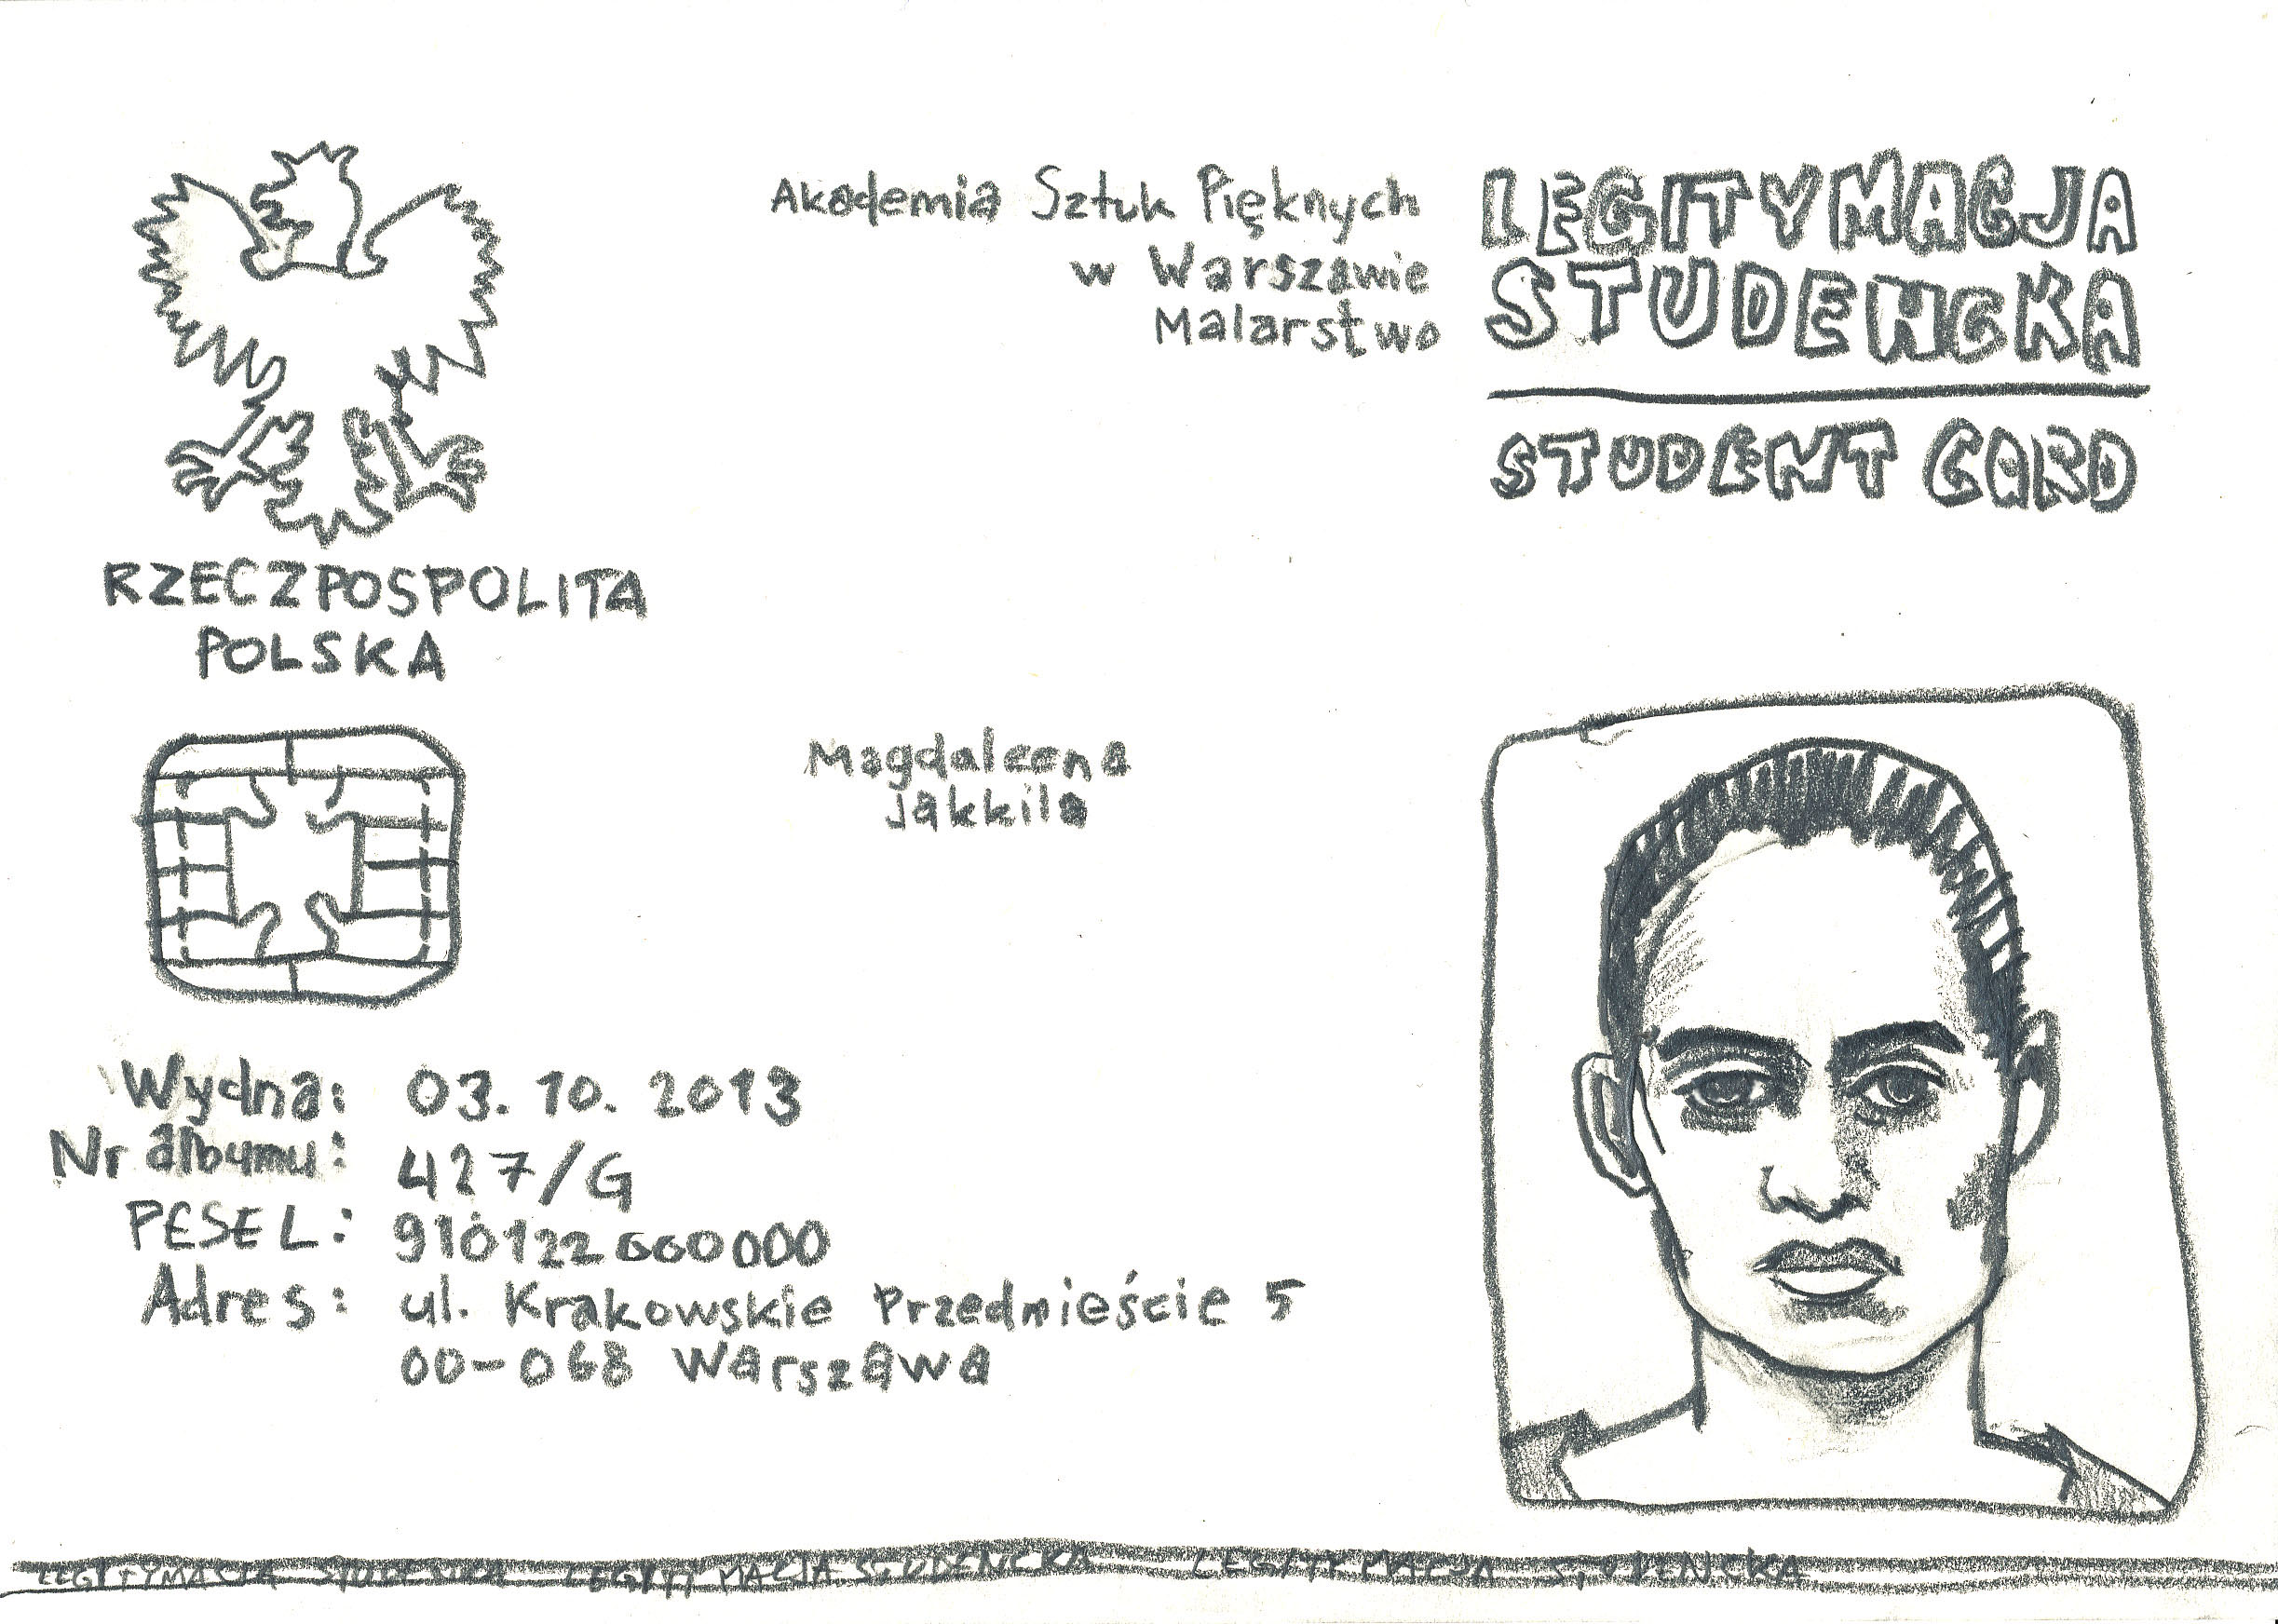 Akademia Sztuk Pięknych
w Warszawie
Malarstwo
LEGITYMACJA
STUDENCKA
STUDENT CARD
RZECZPOSPOLITA
POLSKA
Magdaleena
Jakkila
Wydna: 03. 10. 2013
Nr albumu: 427/G
PESEL: 910122000000
Adres: ul. Krakowskie Przedmieście 5
00-068 Warszawa
LEGITYMACJA STUDENCKA LEGITYMACJA STUDENCKA LEGITYMACJA STUDENCKA